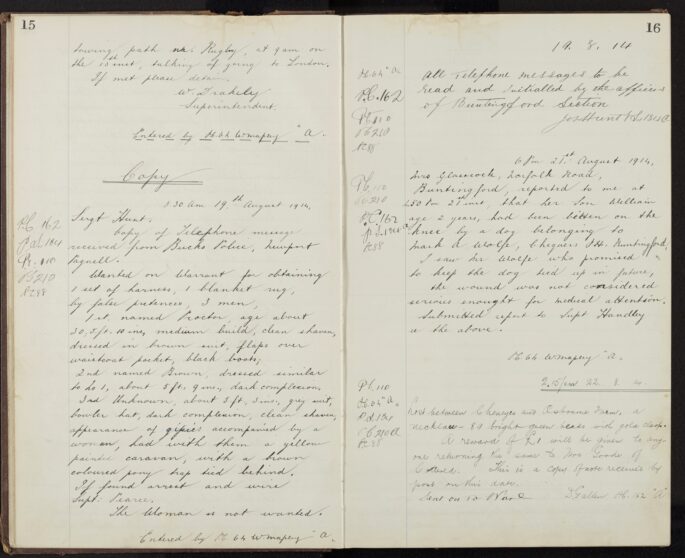 15
towing path nr. Rugby, at 9 am on
the 15th inst, talking of going to London.
If met please detain.
W. Drakeley
Superintendent.
Entered by Pc 64 W mapey "A".
Copy
1.30 am 19th August 1914.
Sergt Hunt.
Copy of Telephone message
received from Bucks Police, Newport
Pagnell.
Wanted on Warrant for obtaining
1 set of harness, 1 blanket rug,
by false pretences, 3 men,
1st, named Proctor, age about
30, 5 ft. 10 ins, medium build, clean shaven,
dressed in brown suit, flaps over
waistcoat pocket, black boots;
2nd named Brown, dressed similar
to No 1, about 5 ft. 9 ins, dark complexion.
3rd Unknown, about 5 ft. 5 ins, grey suit,
bowler hat, dark complexion, clean shaven,
appearance of gipsies accompanied by a
woman, had with them a yellow
painted caravan, with a brown
coloured pony trap tied behind.
If found arrest and wire
Supt. Pearce.
The Woman is not wanted.
Entered by Pc 64 W mapey "A".
PC 162
Pc 110
PC 210
Pc 98
16
19. 8. 14
All Telephone messages to be
read and initialled by the officers
of Buntingford Section
6 Pm 21st August 1914.
Mrs Glasscock, Norfolk Road,
Buntingford, reported to me at
Pm 21st inst, that her Son William
age 2 years, had been bitten on the
knee by a dog belonging to
Mark A Wolfe, Chequers P.H. Buntingford,
I saw Mr Wolfe who promised
to keep the dog tied up in future,
the wound was not considered
serious enought for medical attention.
Submitted report to Supt Handley
in the above.
Pc 64 W mapey "A".
22. 8. 14.
Lost between and Farm, a
necklace - 89 bright green beads with gold clasp.
A reward of £1 will be given to any
one returning the same to Mrs
This is a copy of note received by
post on this date.
Pc 162 "A"
Pc 64 "A"
PC 162
Pc 110
PC 210
Pc 98
Pc 110
PC 210
PC 162
Pc 98
Pc 110
Pc 64 "A"
PC 210
Pc 98